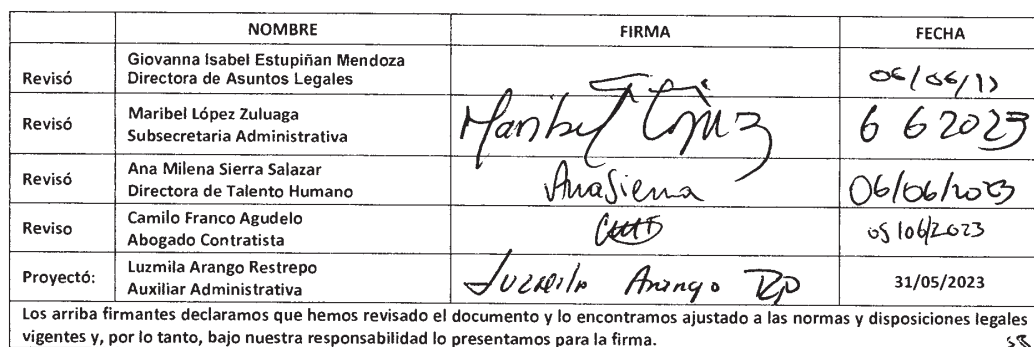 NOMBRE FIRMA FECHA
Revisó Giovanna Isabel Estupiñan Mendoza
Directora de Asuntos Legales 06/06/
Revisó Maribel López Zuluaga
Subsecretaria Administrativa Maribel López 6 6 2023
Revisó Ana Milena Sierra Salazar
Directora de Talento Humano AnaSierra 06/06/2023
Reviso Camilo Franco Agudelo
Abogado Contratista 05/06/2023
Proyectó: Luzmila Arango Restrepo
Auxiliar Administrativa Luzmila Arango 31/05/2023
Los arriba firmantes declaramos que hemos revisado el documento y lo encontramos ajustado a las normas y disposiciones legales
vigentes y, por lo tanto, bajo nuestra responsabilidad lo presentamos para la firma.